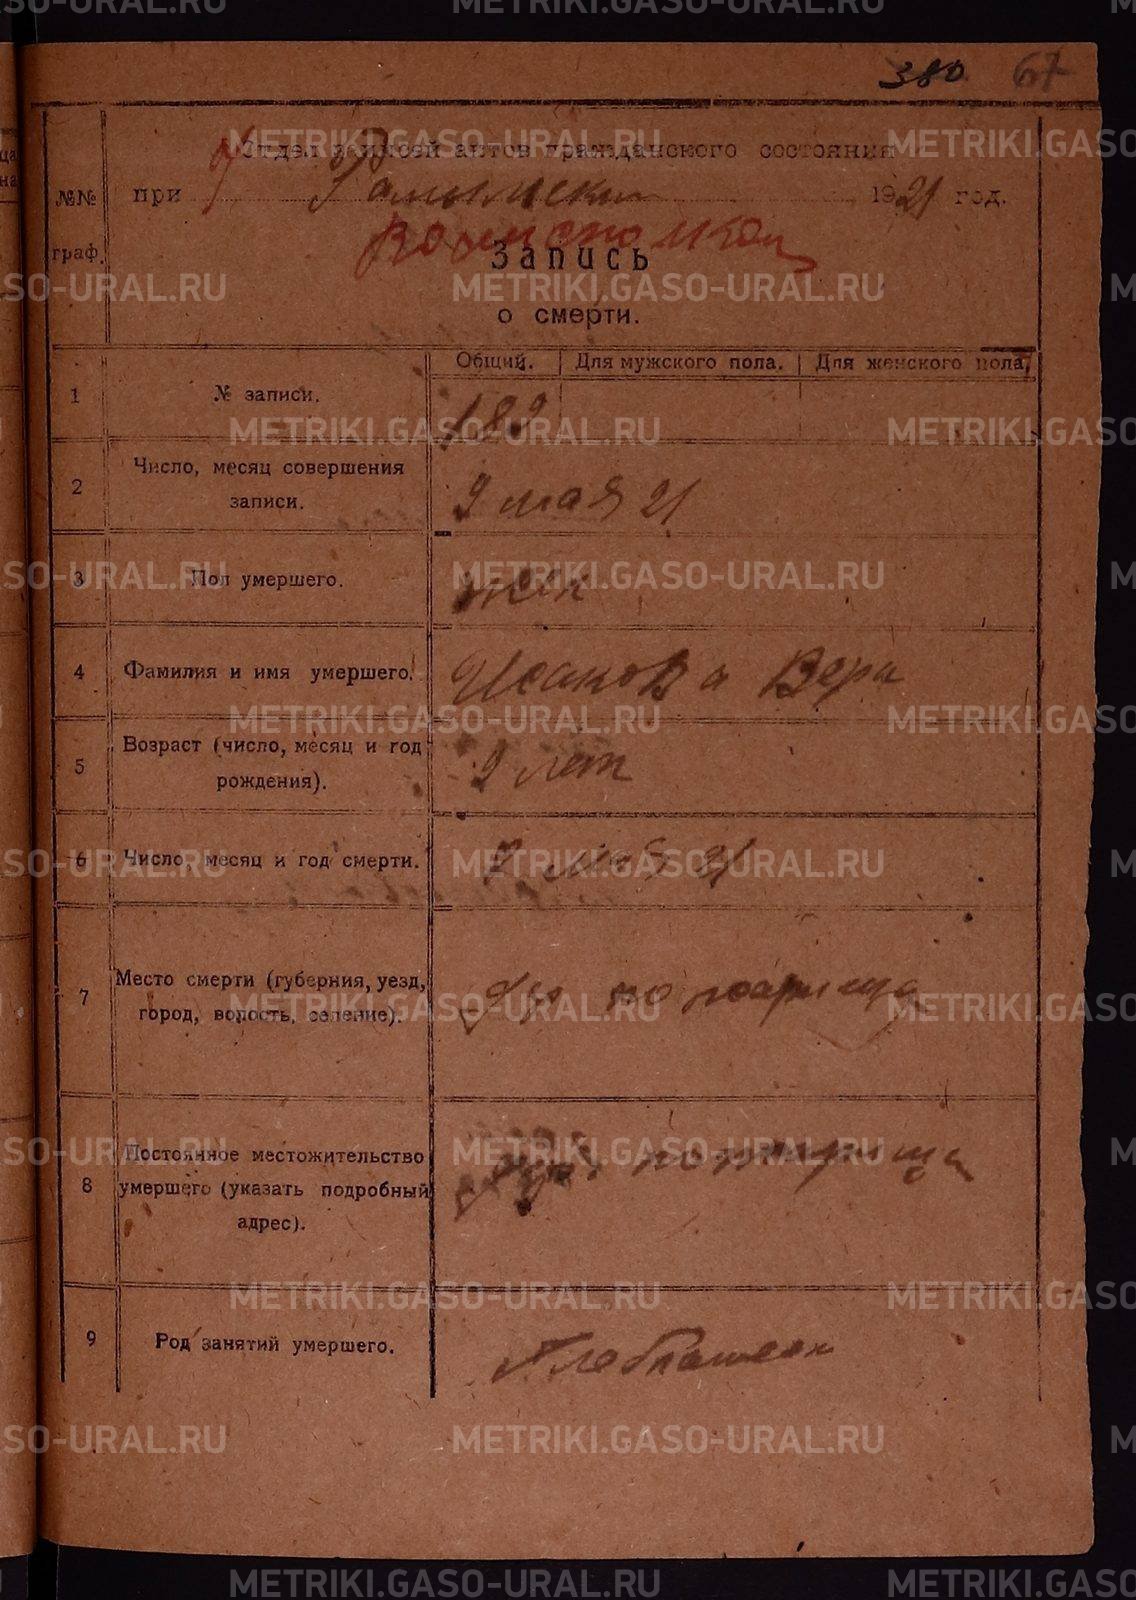 380 67
Отдел записей актов гражданского состояния
№№ при 1921 год.
граф. Запись
о смерти.
Общий. Для мужского пола. Для женского пола.
1 № записи. 189
2 Число, месяц совершения
записи. 9 мая 21
3 Пол умершего. жен
4 Фамилия и имя умершего. Исакова Вера
5 Возраст (число, месяц и год
рождения). 9 лет
6 Число, месяц и год смерти. 7 мая 21
7 Место смерти (губерния, уезд,
город, волость, селение).
8 Постоянное местожительство
умершего (указать подробный
адрес).
9 Род занятий умершего. Хлебпашен
METRIKI.GASO-URAL.RU